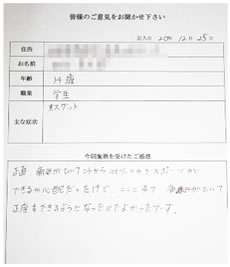 皆様のご意見をお聞かせ下さい
記入日 20 年 12月 25日
住所
お名前
年齢 14歳
職業 学生
主な症状 オスグット
今回施術を受けたご感想
正直 痛みがひいてこれから スポーツが
できるか心配だったけど、ここに来て 痛みがひいて
正座もできるようになったのでよかったです。